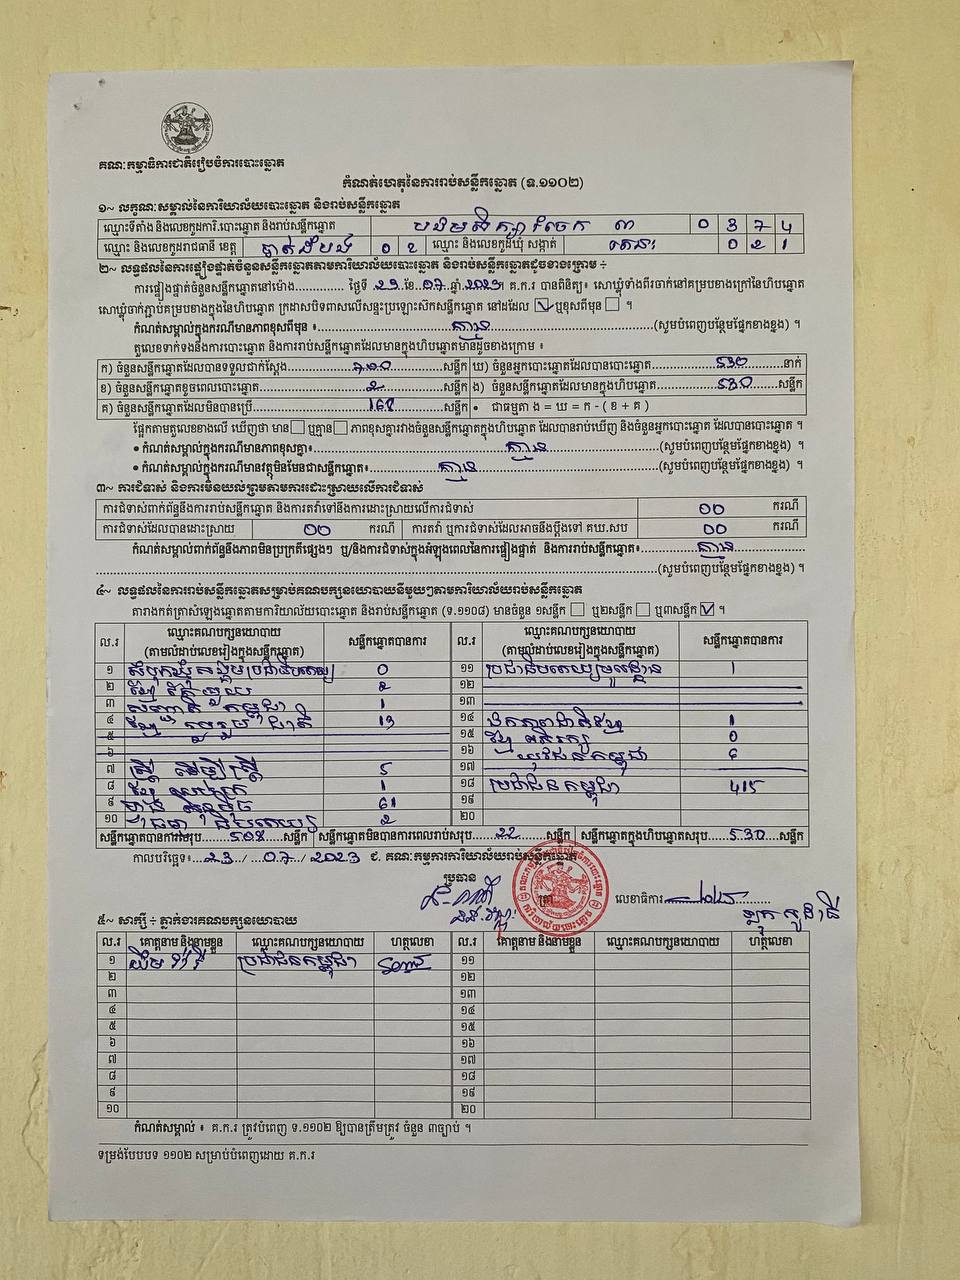 គណៈកម្មាធិការជាតិរៀបចំការបោះឆ្នោត
កំណត់ហេតុនៃការរាប់សន្លឹកឆ្នោត (ទ.១១០២)
១~ លក្ខណៈសម្គាល់នៃការិយាល័យបោះឆ្នោត និងរាប់សន្លឹកឆ្នោត
ឈ្មោះទីតាំង និងលេខកូដការិ.បោះឆ្នោត និងរាប់សន្លឹកឆ្នោត ៣ 0 3 7 4
ឈ្មោះ និងលេខកូដរាជធានី ខេត្ត បាត់ដំបង 0 2 ឈ្មោះ និងលេខកូដឃុំ សង្កាត់ 0 2 1
២~ លទ្ធផលនៃការផ្ទៀងផ្ទាត់ចំនួនសន្លឹកឆ្នោតតាមការិយាល័យបោះឆ្នោត និងរាប់សន្លឹកឆ្នោតដូចខាងក្រោម ÷
ការផ្ទៀងផ្ទាត់ចំនួនសន្លឹកឆ្នោតនៅម៉ោង............... ថ្ងៃទី 23 ខែ 07 ឆ្នាំ 2023។ គ.ក.រ បានពិនិត្យ៖ សោឃ្លុំទាំងពីរចាក់នៅគម្របខាងក្រៅនៃហិបឆ្នោត
សោឃ្លុំចាក់ភ្ជាប់គម្របខាងក្នុងនៃហិបឆ្នោត ក្រដាសបិទពាសលើសន្ទះប្រឡោះស៊កសន្លឹកឆ្នោត នៅដដែល ☑ ឬខុសពីមុន ☐ ។
កំណត់សម្គាល់ក្នុងករណីមានភាពខុសពីមុន ៖ គ្មាន (សូមបំពេញបន្ថែមផ្នែកខាងខ្នង) ។
តួលេខទាក់ទងនឹងការបោះឆ្នោត និងការរាប់សន្លឹកឆ្នោតដែលមានក្នុងហិបឆ្នោតមានដូចខាងក្រោម ៖
ក) ចំនួនសន្លឹកឆ្នោតដែលបានទទួលជាក់ស្តែង 700 សន្លឹក ឃ) ចំនួនអ្នកបោះឆ្នោតដែលបានបោះឆ្នោត 530 នាក់
ខ) ចំនួនសន្លឹកឆ្នោតខូចពេលបោះឆ្នោត 2 សន្លឹក ង) ចំនួនសន្លឹកឆ្នោតដែលមានក្នុងហិបឆ្នោត 530 សន្លឹក
គ) ចំនួនសន្លឹកឆ្នោតដែលមិនបានប្រើ 168 សន្លឹក • ជាធម្មតា ង = ឃ = ក - ( ខ + គ )
ផ្អែកតាមតួលេខខាងលើ ឃើញថា មាន ☐ ឬគ្មាន ☐ ភាពខុសគ្នារវាងចំនួនសន្លឹកឆ្នោតក្នុងហិបឆ្នោត ដែលបានរាប់ឃើញ និងចំនួនអ្នកបោះឆ្នោត ដែលបានបោះឆ្នោត ។
• កំណត់សម្គាល់ក្នុងករណីមានភាពខុសគ្នា៖ គ្មាន (សូមបំពេញបន្ថែមផ្នែកខាងខ្នង) ។
• កំណត់សម្គាល់ក្នុងករណីមានវត្ថុមិនមែនជាសន្លឹកឆ្នោត៖ គ្មាន (សូមបំពេញបន្ថែមផ្នែកខាងខ្នង) ។
៣~ ការជំទាស់ និងការមិនយល់ព្រមតាមការដោះស្រាយលើការជំទាស់
ការជំទាស់ពាក់ព័ន្ធនឹងការរាប់សន្លឹកឆ្នោត និងការតវ៉ាទៅនឹងការដោះស្រាយលើការជំទាស់ 00 ករណី
ការជំទាស់ដែលបានដោះស្រាយ 00 ករណី ការតវ៉ា ឬការជំទាស់ដែលអាចនឹងប្តឹងទៅ គឃ.សប 00 ករណី
កំណត់សម្គាល់ពាក់ព័ន្ធនឹងភាពមិនប្រក្រតីផ្សេងៗ ឬ/និងការជំទាស់ក្នុងអំឡុងពេលនៃការផ្ទៀងផ្ទាត់ និងការរាប់សន្លឹកឆ្នោត៖ គ្មាន
(សូមបំពេញបន្ថែមផ្នែកខាងខ្នង) ។
៤~ លទ្ធផលនៃការរាប់សន្លឹកឆ្នោតសម្រាប់គណបក្សនយោបាយនីមួយៗតាមការិយាល័យរាប់សន្លឹកឆ្នោត
តារាងកត់ត្រាសំឡេងឆ្នោតតាមការិយាល័យបោះឆ្នោត និងរាប់សន្លឹកឆ្នោត (ទ.១១០៨) មានចំនួន ១សន្លឹក ☐ ឬ២សន្លឹក ☐ ឬ៣សន្លឹក ☑ ។
ល.រ ឈ្មោះគណបក្សនយោបាយ (តាមលំដាប់លេខរៀងក្នុងសន្លឹកឆ្នោត) សន្លឹកឆ្នោតបានការ ល.រ ឈ្មោះគណបក្សនយោបាយ (តាមលំដាប់លេខរៀងក្នុងសន្លឹកឆ្នោត) សន្លឹកឆ្នោតបានការ
១ សំបុកឃ្មុំសង្គមប្រជាធិបតេយ្យ 0 ១១ ប្រជាធិបតេយ្យមូលដ្ឋាន 1
២ ខ្មែរ 2 ១២
៣ សញ្ជាតិកម្ពុជា 1 ១៣
៤ ខ្មែររួបរួមជាតិ 13 ១៤ ឯកភាពជាតិខ្មែរ 1
៥ ១៥ ខ្មែរ 0
៦ ១៦ យុវជនកម្ពុជា 6
៧ ស្ត្រីដើម្បីស្ត្រី 5 ១៧
៨ ខ្មែរ 1 ១៨ ប្រជាជនកម្ពុជា 415
៩ 61 ១៩
១០ 2 ២០
សន្លឹកឆ្នោតបានការសរុប 508 សន្លឹក សន្លឹកឆ្នោតមិនបានការពេលរាប់សរុប 22 សន្លឹក សន្លឹកឆ្នោតក្នុងហិបឆ្នោតសរុប 530 សន្លឹក
កាលបរិច្ឆេទ៖ 23 / 07 / 2023 ជ. គណៈកម្មការការិយាល័យរាប់សន្លឹកឆ្នោត
ប្រធាន
លេខាធិការ
៥~ សាក្សី ÷ ភ្នាក់ងារគណបក្សនយោបាយ
ល.រ គោត្តនាម និងនាមខ្លួន ឈ្មោះគណបក្សនយោបាយ ហត្ថលេខា ល.រ គោត្តនាម និងនាមខ្លួន ឈ្មោះគណបក្សនយោបាយ ហត្ថលេខា
១ ប្រជាជនកម្ពុជា ១១
២ ១២
៣ ១៣
៤ ១៤
៥ ១៥
៦ ១៦
៧ ១៧
៨ ១៨
៩ ១៩
១០ ២០
កំណត់សម្គាល់ ៖ គ.ក.រ ត្រូវបំពេញ ទ.១១០២ ឱ្យបានត្រឹមត្រូវ ចំនួន ៣ច្បាប់ ។
ទម្រង់បែបបទ ១១០២ សម្រាប់បំពេញដោយ គ.ក.រ